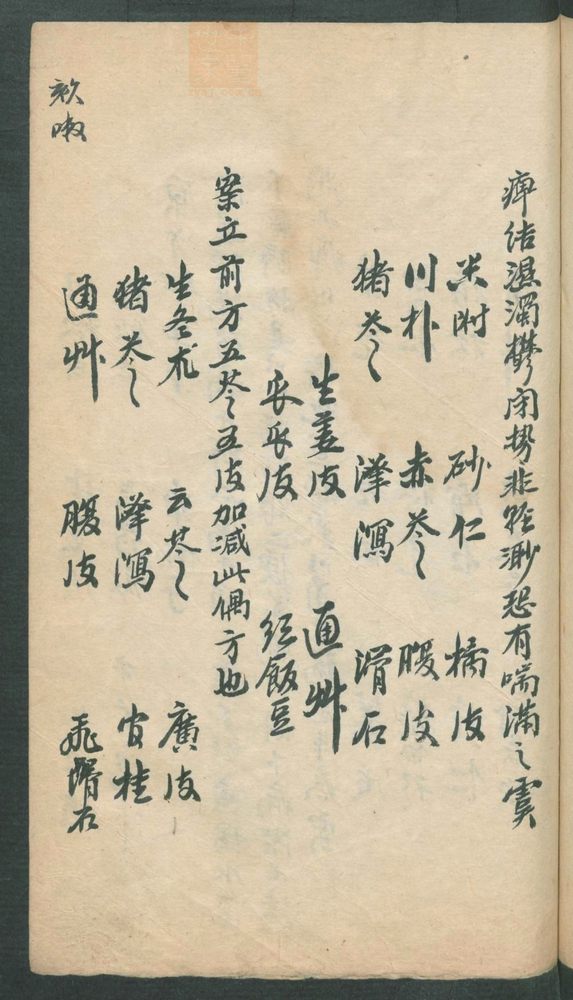 痺结濕濁欝闭勢非轻渺恐有喘满之虞
米附 砂仁 橘皮
川朴 赤苓 腹皮
猪苓 泽瀉 滑石
生姜皮 通艸
瓜皮 红飯豆
案立前方五苓五皮加减此偶方也
生冬朮 云苓 廣皮
猪苓 泽瀉 官桂
通艸 腹皮 飛滑石
欬嗽